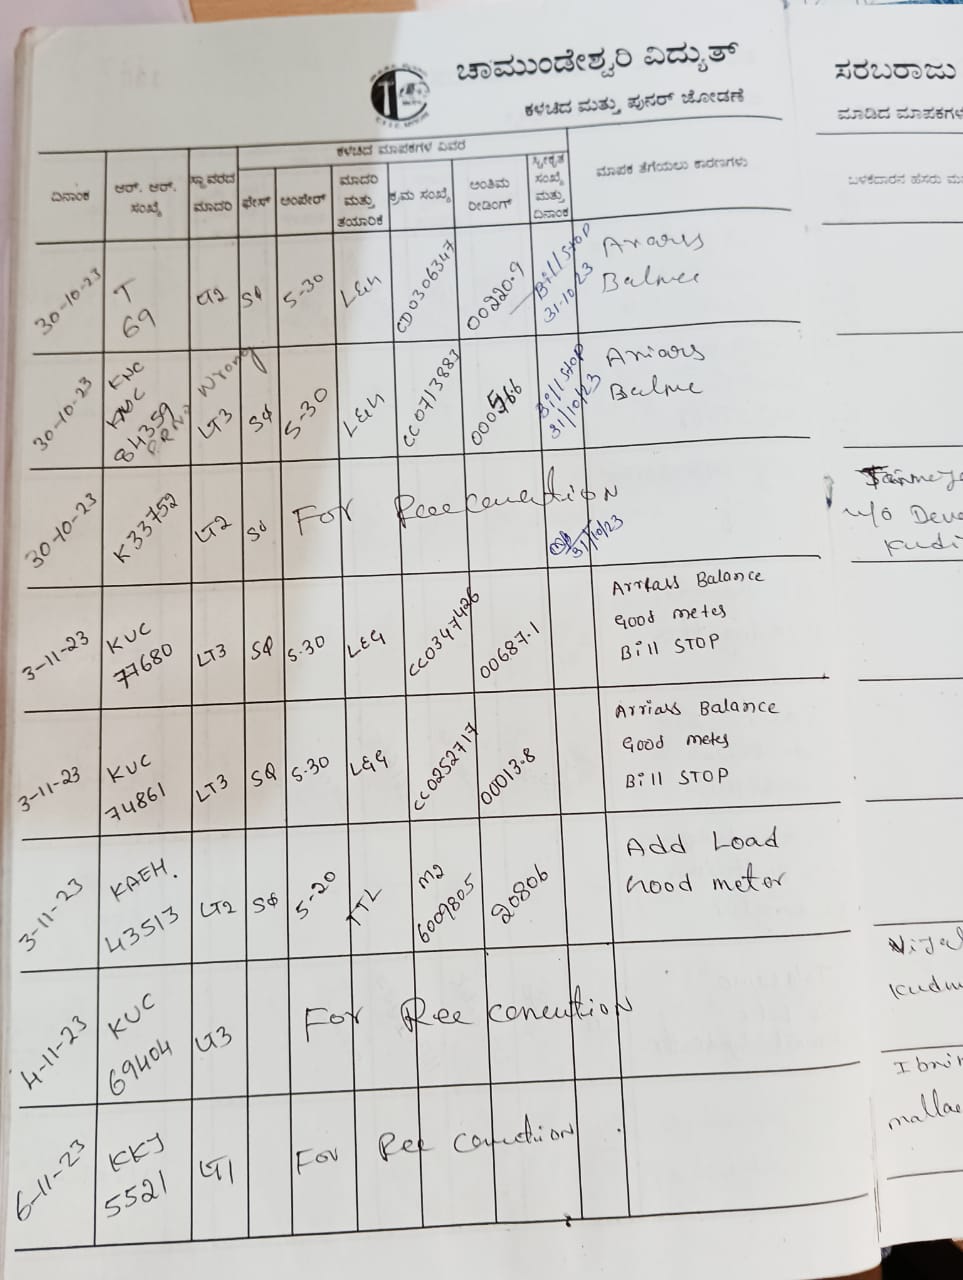 ಚಾಮುಂಡೇಶ್ವರಿ ವಿದ್ಯುತ್
ಕಳಚಿದ ಮತ್ತು ಪುನರ್ ಜೋಡಣೆ
ಸರಬರಾಜು
ಮಾಡಿದ ಮಾಪಕಗಳ
ದಿನಾಂಕ
ಆರ್. ಆರ್. ಸಂಖ್ಯೆ
ಸ್ಥಾವರದ ಮಾದರಿ
ಕಳಚಿದ ಮಾಪಕಗಳ ವಿವರ
ಫೇಸ್
ಅಂಪೇರ್
ಮಾದರಿ ಮತ್ತು ತಯಾರಿಕೆ
ಕ್ರಮ ಸಂಖ್ಯೆ
ಅಂತಿಮ ರೀಡಿಂಗ್
ಸ್ವೀಕೃತ ಸಂಖ್ಯೆ ಮತ್ತು ದಿನಾಂಕ
ಮಾಪಕ ತೆಗೆಯಲು ಕಾರಣಗಳು
ಬಳಕೆದಾರನ ಹೆಸರು
30-10-23 T 69 LT2 Sφ 5-30 L&H CD0306347 00220.9 Bill STOP 31-10/23 Arears Balnee
30-10-23 KNC KUC 84359 Wrong LT3 Sφ 5-30 L&H CC0713883 Bill STOP 31/10/23 Arriars Balne
30-10-23 K33752 LT2 Sφ For Reeconeution 31/10/23
W/o Deve
3-11-23 KUC 77680 LT3 SQ 5.30 L&G CC0347426 00687.1 Arrears Balance
Good metes
Bill STOP
3-11-23 KUC 74861 LT3 SQ 5.30 L&G CC0252717 00013.8 Arriars Balance
Good metes
Bill STOP
3-11-23 KAEH. 43513 LT2 Sφ 5-20 TTL M2 6009805 20806 Add Load
Good metor
4-11-23 KUC 69404 LT3 For Ree coneution
Kudm
6-11-23 KKJ 5521 LT1 For Ree conution
Ibrir
mallae